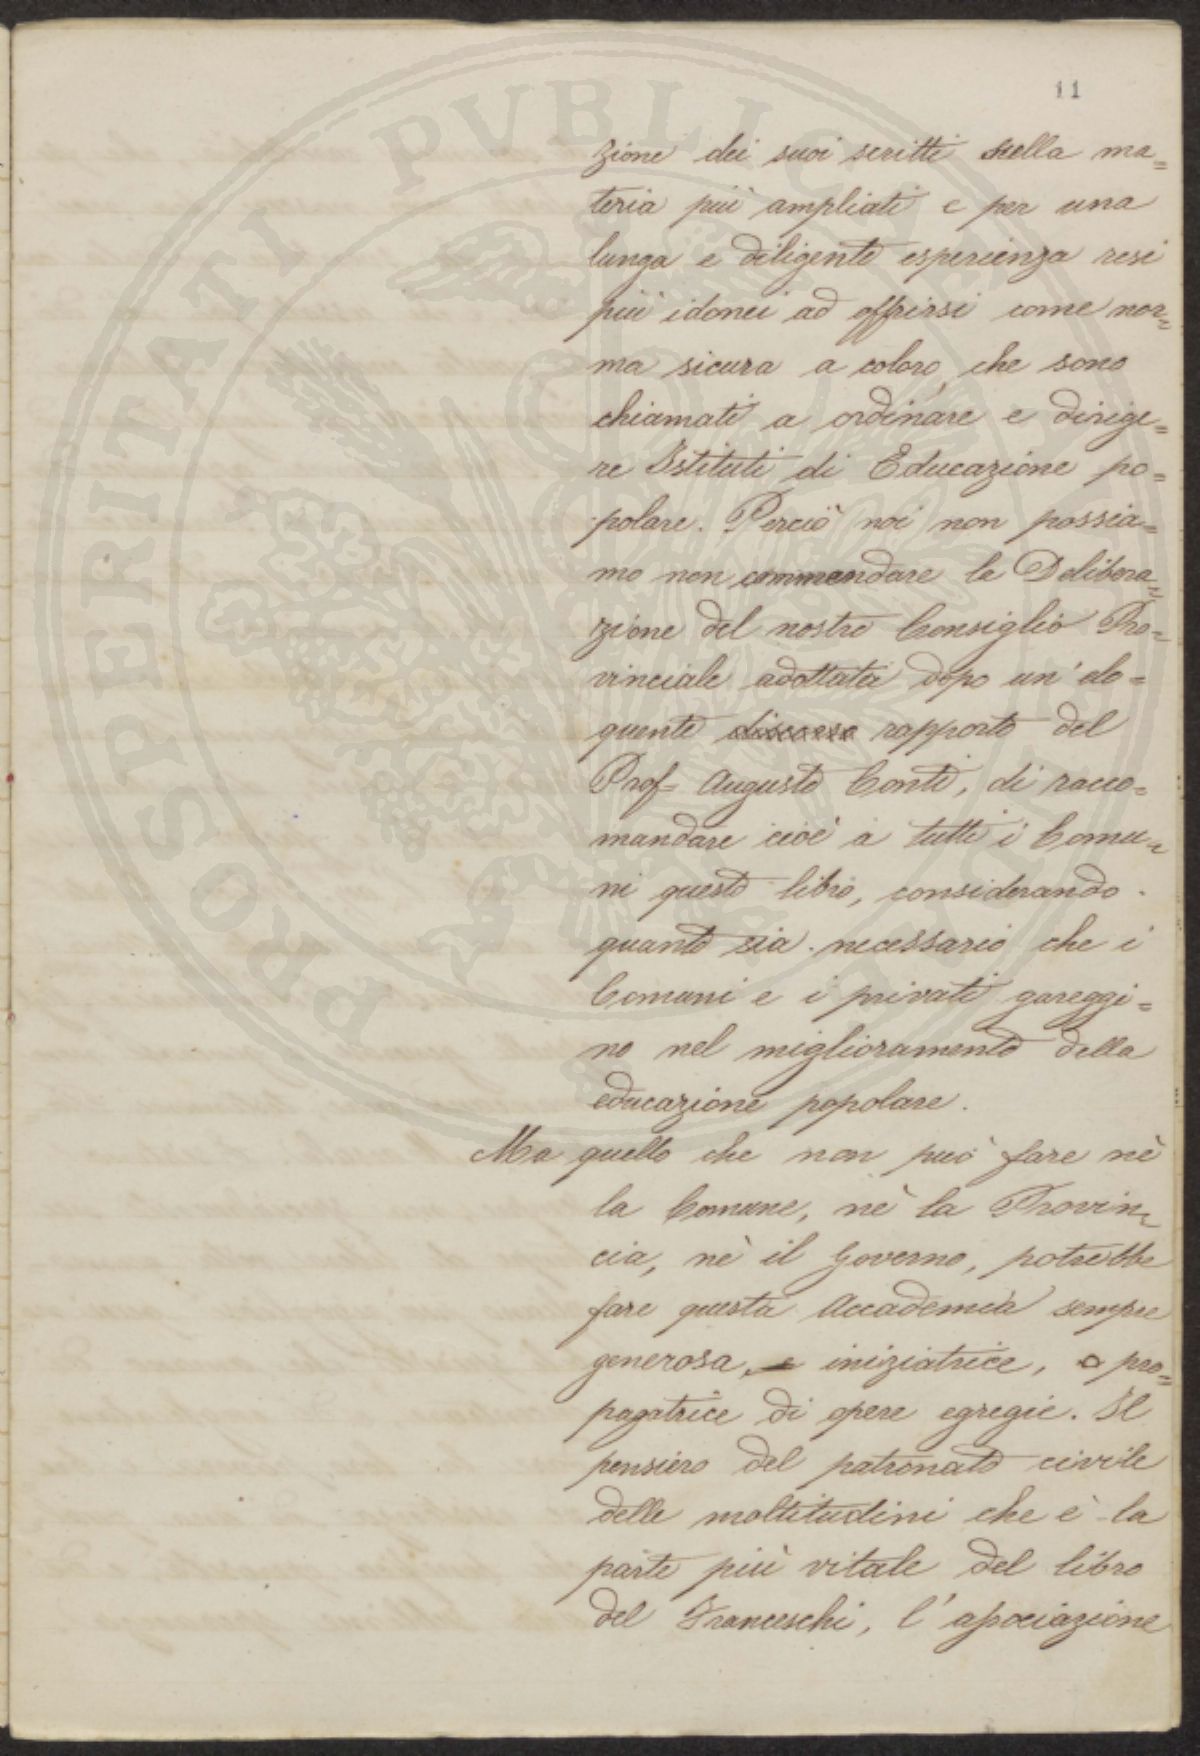 11
zione dei suoi scritti sulla ma=
teria più ampliati e per una
lunga e diligente esperienza resi
più idonei ad offrirsi come nor=
ma sicura a coloro che sono
chiamati a ordinare e dirige=
re Istituti di Educazione po=
polare. Perciò noi non possia=
mo non commendare la Delibera=
zione del nostro Consiglio Pro=
vinciale adottata dopo un' elo=
quente discorso rapporto del
Prof= Augusto Conti, di racco=
mandare cioè a tutti i Comu=
ni questo libro, considerando
quanto sia necessario che i
Comuni e i privati gareggi=
no nel miglioramento della
educazione popolare.
Ma quello che non può fare nè
la Comune, nè la Provin=
cia, nè il Governo, potrebbe
fare questa Accademia sempre
generosa, e iniziatrice, o pro=
pagatrice di opere egregie. Il
pensiero del patronato civile
delle moltitudini che è la
parte più vitale del libro
del Franceschi, l' associazione
PROSPERITATI PUBLICAE